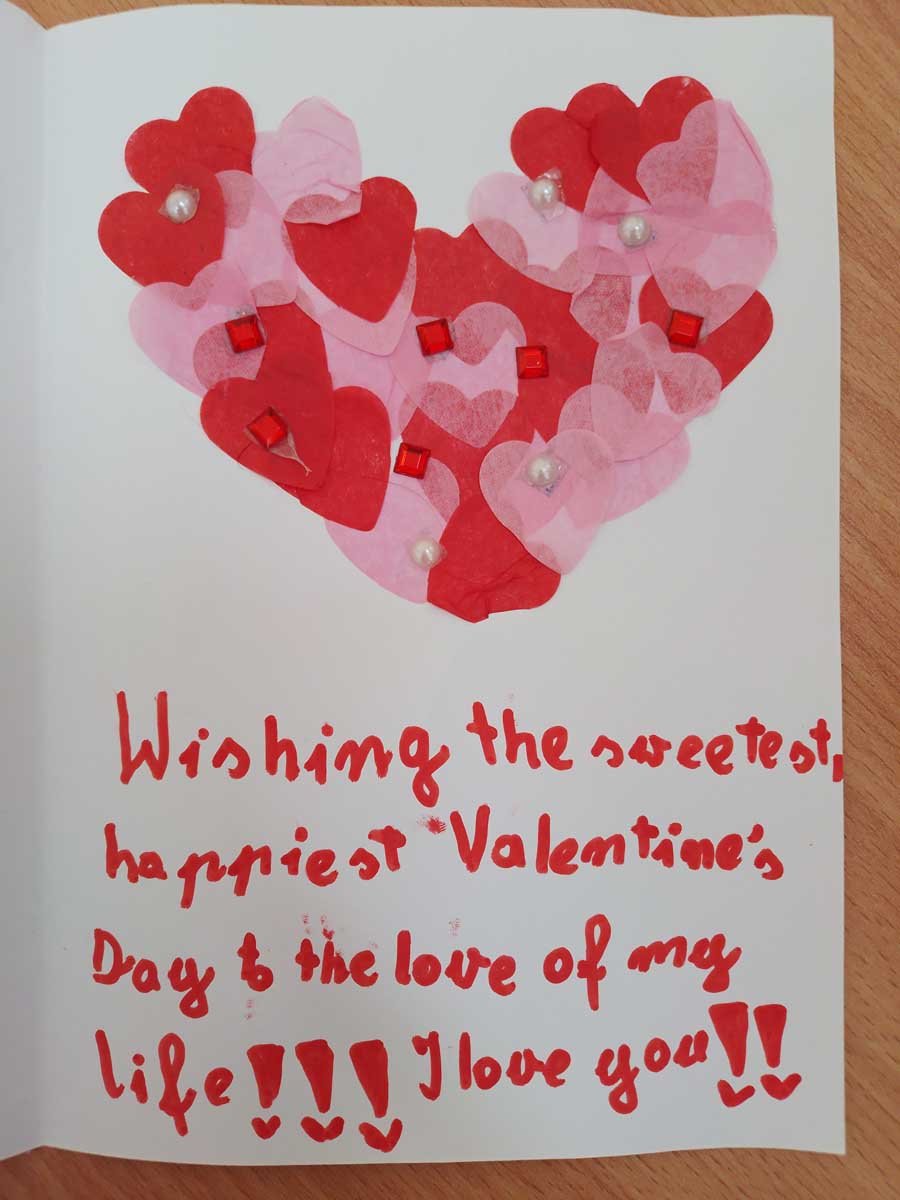 Wishing the sweetest,
happiest Valentine's
Day to the love of my
life!!! I love you!!